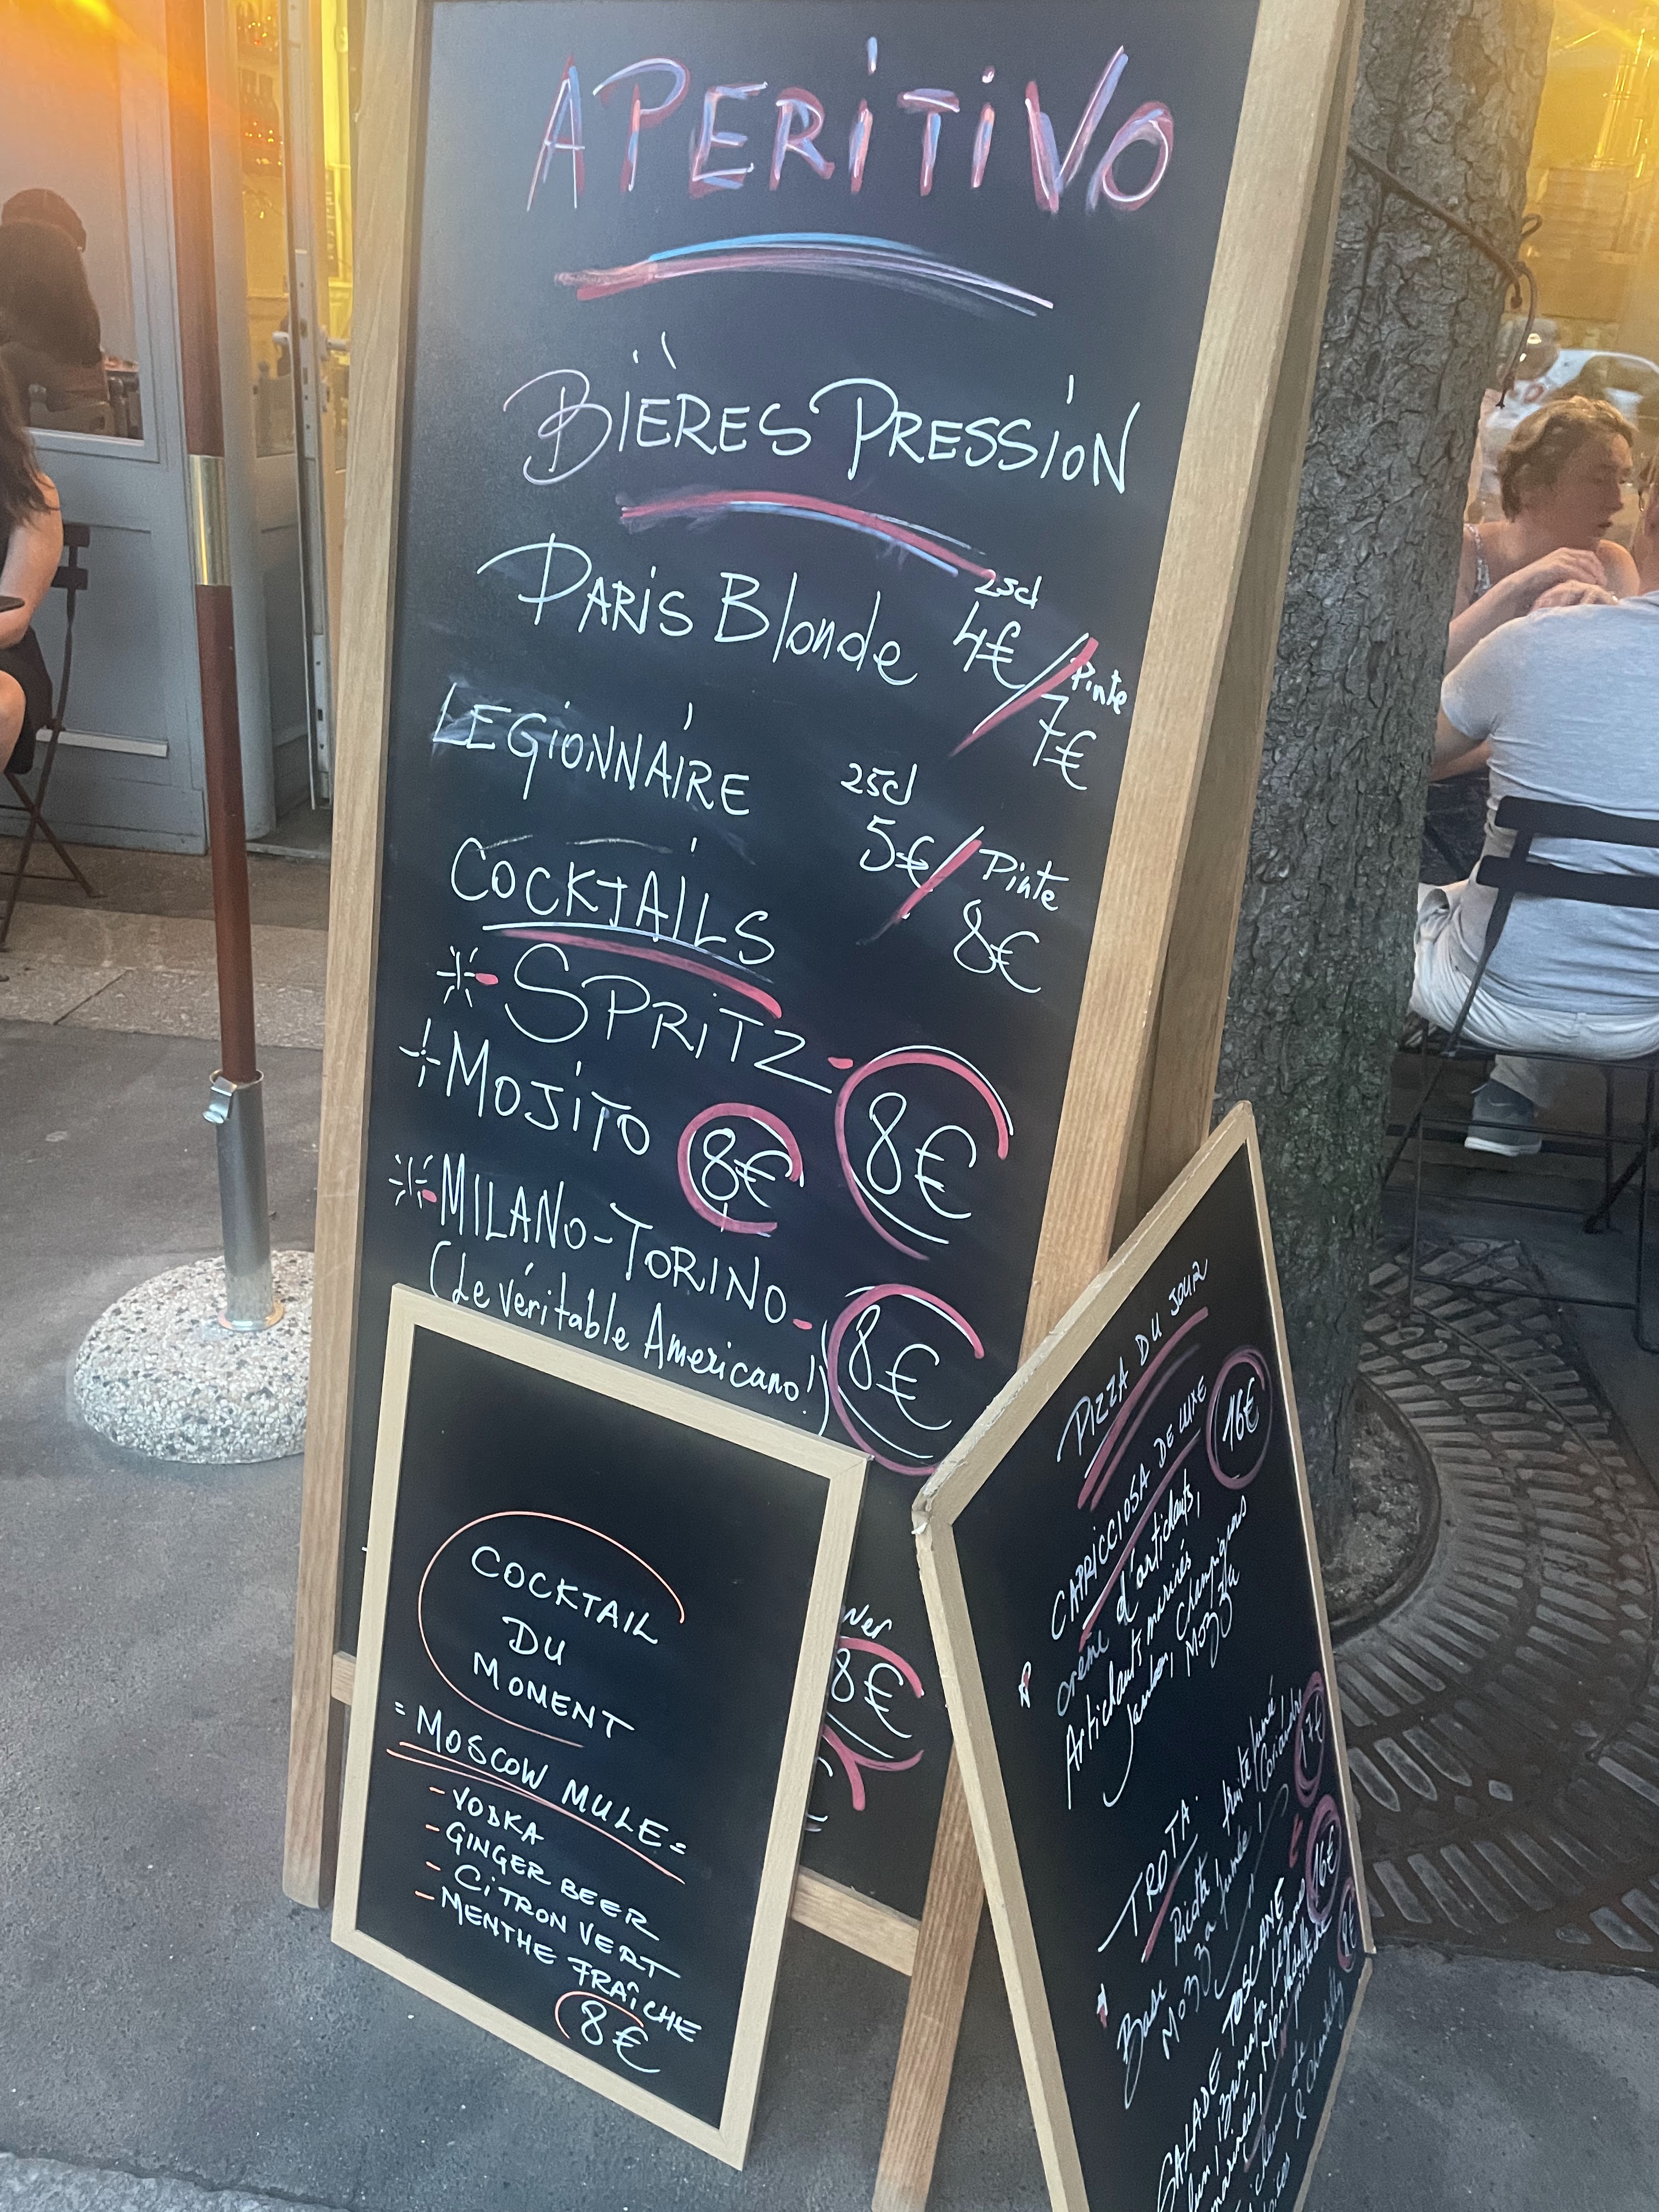 APERITIVO
BIÈRES PRESSION
PARIS Blonde 25cl 4€ / Pinte 7€
LEGIONNAIRE 25cl 5€ / Pinte 8€
COCKTAILS
SPRITZ - 8€
MOJITO 8€
MILANO-TORINO - 8€
(Le véritable Americano!)
8€
COCKTAIL
DU
MOMENT
= MOSCOW MULE =
- VODKA
- GINGER BEER
- CITRON VERT
- MENTHE FRAÎCHE
8€
PIZZA DU JOUR
CAPRICCIOSA DE LUXE 16€
crème d'artichauts,
Artichauts marinés, Champignons
Jambon, Mozza
TROTA. 17€
Base Ricotta, truite fumée
Mozza fumée, Coriandre
SALADE TOSCANE 16€